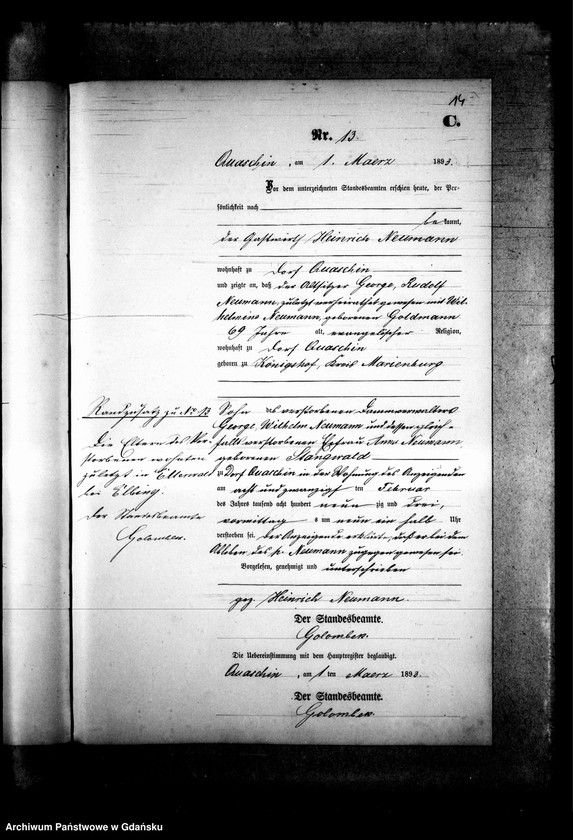 14
C.
Nr. 13.
Quaschin, am 1. Maerz 1893.
Vor dem unterzeichneten Standesbeamten erschien heute, der Per-
sönlichkeit nach
bekannt,
der Gastwirth Heinrich Neumann
wohnhaft zu Dorf Quaschin
und zeigte an, daß der Altsitzer George, Rudolf
Neumann, zuletzt verheirathet gewesen mit Wil-
helmine Neumann, geborenen Goldmann
69 Jahre alt, evangelischer Religion,
wohnhaft zu Dorf Quaschin
geboren zu Königshof, Kreis Marienburg
Sohn des verstorbenen Dammverwalters
George, Wilhelm Neumann und dessen gleich-
falls verstorbenen Ehefrau Anna Neumann
geborenen Stangwald
zu Dorf Quaschin in der Wohnung des Anzeigenden
am acht und zwanzigsten Februar
des Jahres tausend acht hundert neunzig und drei,
vormittags um neun ein halb Uhr
verstorben sei. Der Anzeigende erklärt, daß er bei dem
Ableben des p. Neumann zugegen gewesen sei.
Vorgelesen, genehmigt und unterschrieben
gez. Heinrich Neumann.
Der Standesbeamte.
Golombek.
Die Uebereinstimmung mit dem Hauptregister beglaubigt.
Quaschin, am 1 ten Maerz 1893.
Der Standesbeamte.
Golombek.
Randzusatz zu No 13
Die Eltern des Ver-
storbenen wohnten
zuletzt in Ellerwald
bei Elbing.
Der Standesbeamte
Golombek.
Archiwum Państwowe w Gdańsku